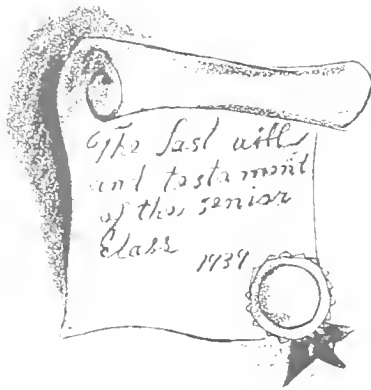 The last will
and testament
of the senior
Class
1939